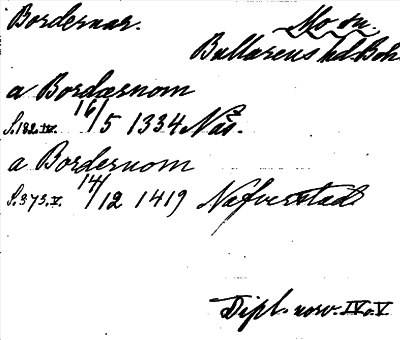 Bordernar. Mo sn.
Bullarens hd. Boh.
a Bordærnom
S. 182. IV. 16/5 1334 Näs.
a Bordernom
S. 373. V. 14/12 1419 Nafverstad
Dipl. norv. IV o. V